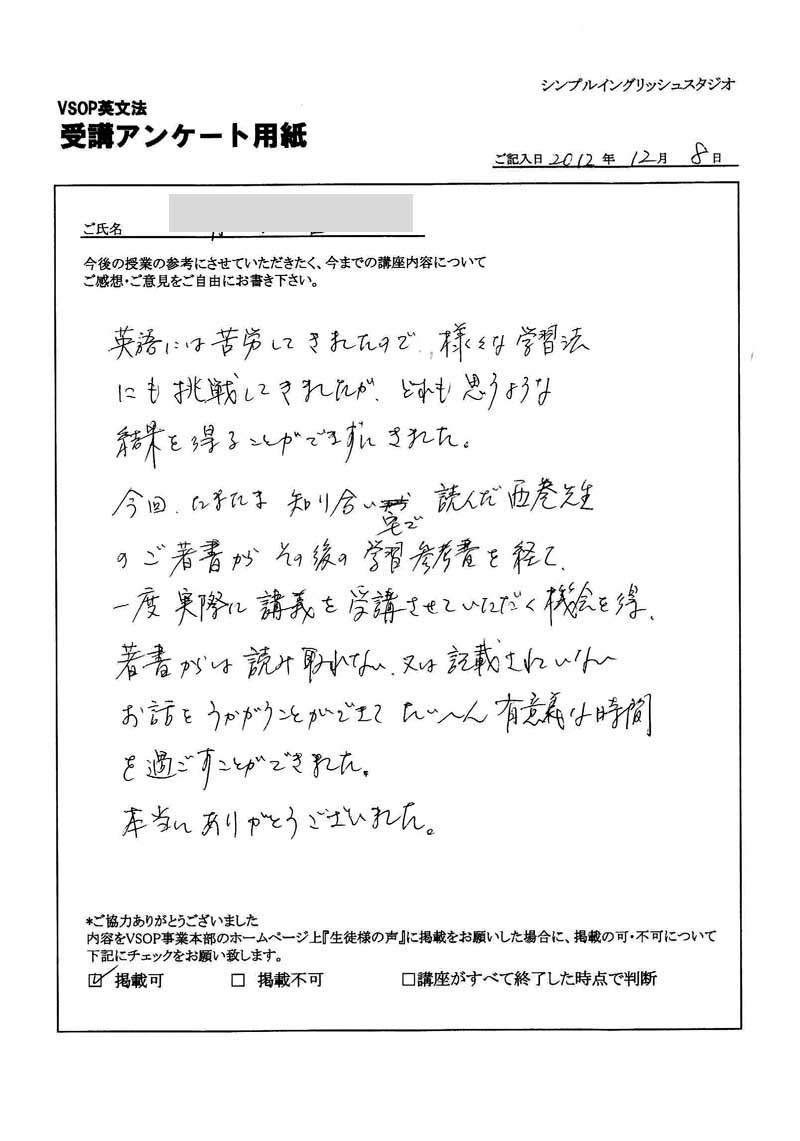 シンプルイングリッシュスタジオ
VSOP英文法
受講アンケート用紙
ご記入日 2012 年 12 月 8 日
ご氏名
今後の授業の参考にさせていただきたく、今までの講座内容について
ご感想・ご意見をご自由にお書き下さい。
英語には苦労してきましたので、様々な学習法
にも挑戦してきましたが、どれも思うような
結果を得ることができずにきました。
今回、たまたま知り合い宅で読んだ西巻先生
のご著書からその後の学習参考書を経て、
一度実際に講義を受講させていただく機会を得、
著書からは読み取れない、又は記載されていない
お話をうかがうことができてたいへん有意義な時間
を過ごすことができました。
本当にありがとうございました。
*ご協力ありがとうございました
内容をVSOP事業本部のホームページ上『生徒様の声』に掲載をお願いした場合に、掲載の可・不可について
下記にチェックをお願い致します。
☑ 掲載可 □ 掲載不可 □講座がすべて終了した時点で判断